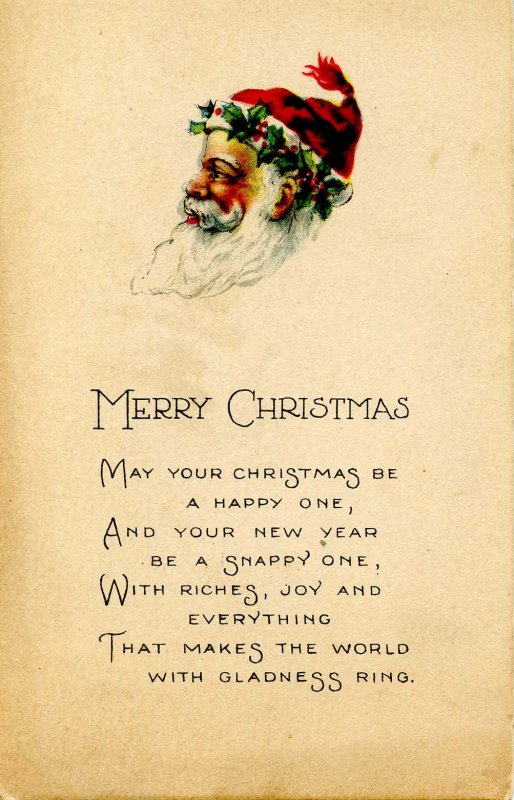 MERRY CHRISTMAS
MAY YOUR CHRISTMAS BE
A HAPPY ONE,
AND YOUR NEW YEAR
BE A SNAPPY ONE,
WITH RICHES, JOY AND
EVERYTHING
THAT MAKES THE WORLD
WITH GLADNESS RING.